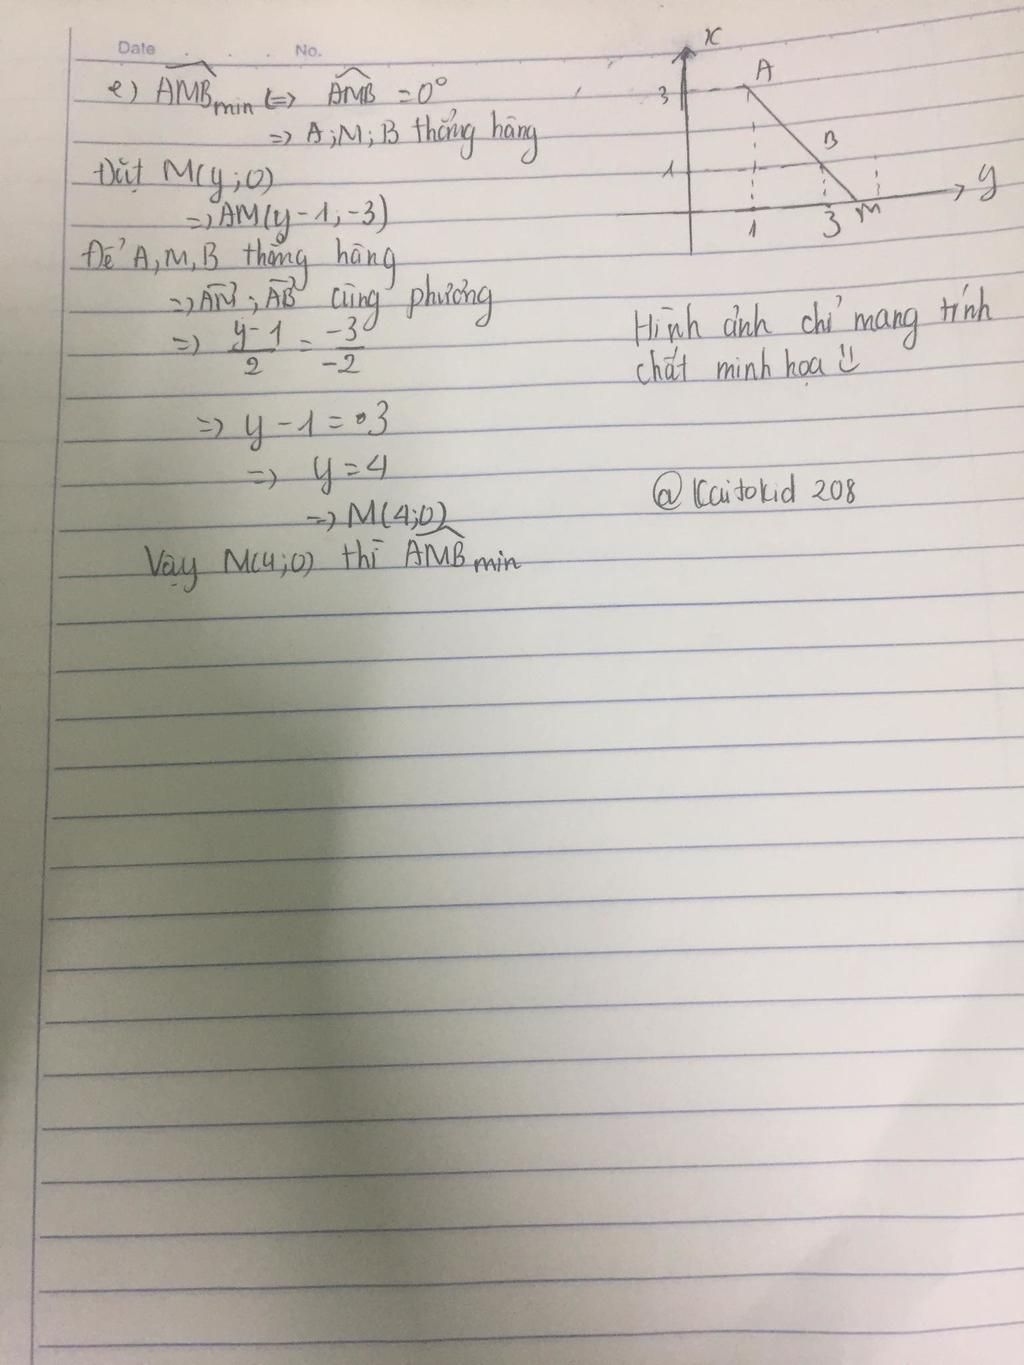 Date . . . No.
e) AMB min ⇔ AMB = 0°
=> A; M; B thẳng hàng
Đặt M(y; 0)
=> AM(y-1; -3)
Để A, M, B thẳng hàng
=> AM; AB cùng phương
=> y-1/2 = -3/-2
=> y - 1 = 3
=> y = 4
=> M(4; 0)
Vậy M(4; 0) thì AMB min
x
A
3
B
1
y
1 3 M
Hình ảnh chỉ mang tính
chất minh họa
@Kaitokid 208